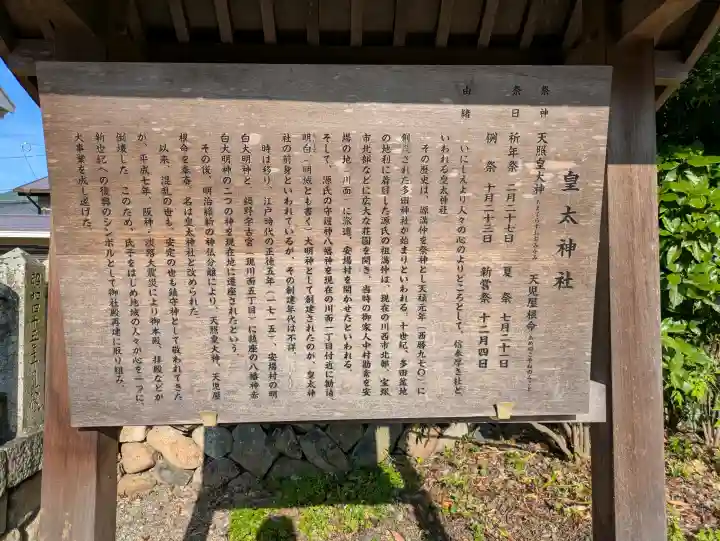 皇太神社
祭神 天照皇大神 あまてらすおおみかみ 天児屋根命 あめのこやねのみこと
祭日 祈年祭 二月二十七日 夏祭 七月二十一日
例祭 十月二十三日 新嘗祭 十二月四日
由緒
いにしえより人々の心のよりどころとして、信奉厚き社と
いわれる皇太神社
その歴史は、源満仲を祭神とし天禄元年(西暦九七〇)に
創建された多田神社が始まりといわれる。十世紀、多田盆地
の地利に着目した源氏の祖満仲は、現在の川西市北部、宝塚
市北部などに広大な荘園を開き、当時の御家人中村勘素を安
場の地(川面)に派遣、安場村を開かせたといわれる。
そして、源氏の守護神八幡神を現在の川面一丁目付近に勧請
明白(明城とも書く)大明神として創建されたのが、皇太神
社の前身といわれているが、その創建年代は不詳。
時は移り、江戸時代の正徳五年(一七一五)、安場村の明
白大明神と、鍋野字古宮(現川面五丁目)に鎮座の八幡神赤
白大明神の二つの神を現在地に遷座されたという。
その後、明治維新の神仏分離により、天照皇大神、天児屋
根命を奉斎、名は皇太神社と改められた。
以来、混迷の世も、安定の世も鎮守神として敬われてきた
が、平成七年、阪神・淡路大震災により御本殿、拝殿などが
倒壊した。このため、氏子をはじめ地域の人々が心を一つに、
新世紀への復興のシンボルとして御社殿再建に取り組み、
大事業を成し遂げた。
昭和四十五年